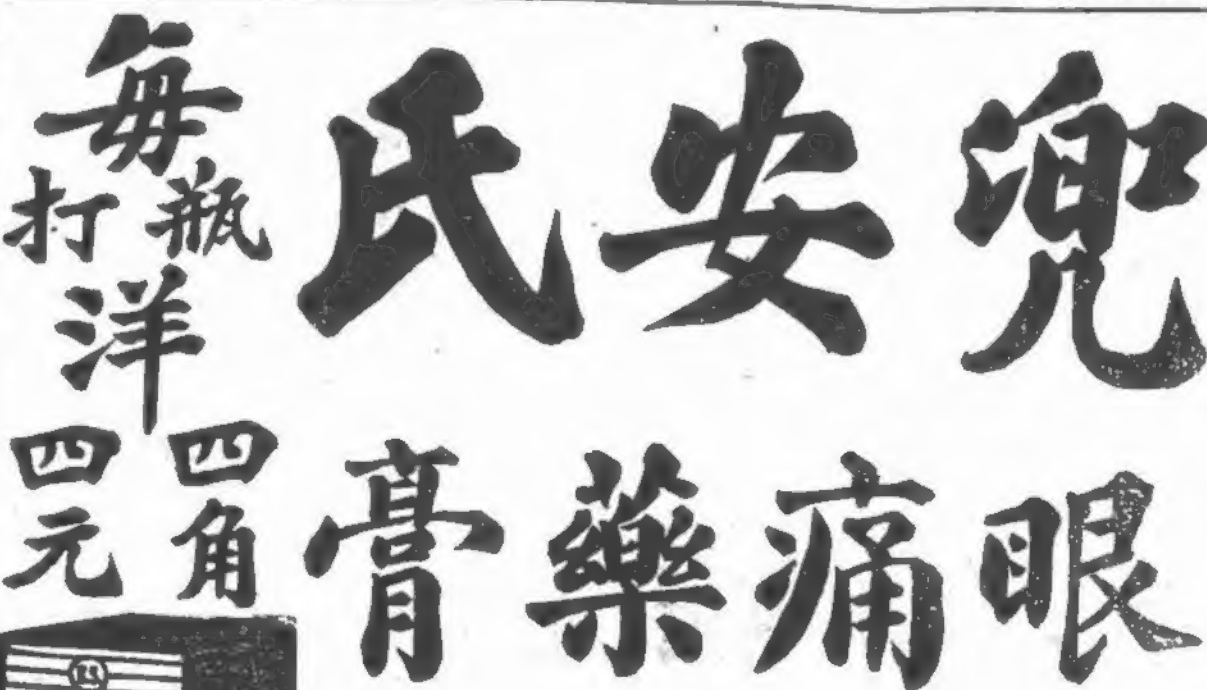 兜安氏
眼痛藥膏
每
瓶打
洋
四角
四元